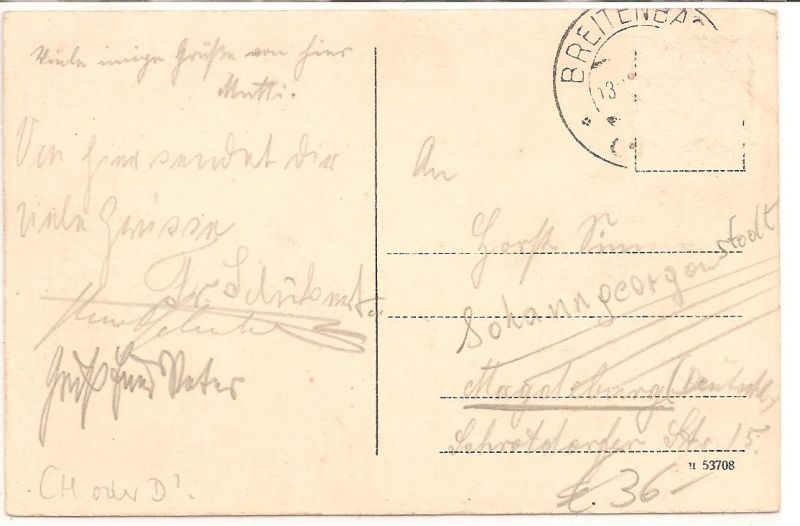 Viele innige Grüße von hier
Mutti.
Von hier sendet dir
viele Grüsse
Fr. Schubert
Gruß Euer Vater
CH oder D?
BREITENBA
13
An
Horst
Johanngeorgenstadt
Magdeburg (Deutschl.)
Schrotdorfer Str. 15.
u 53708
36-